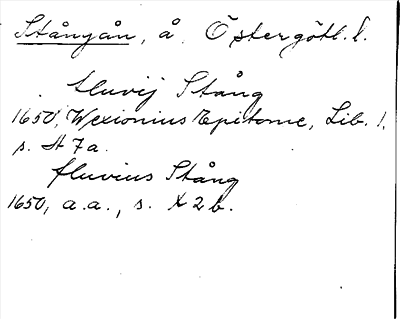 Stångån, å. Östergötl. l.
fluvij Stång
1650, Wexionius Epitome, Lib. 1,
s. A 7a.
fluvius Stång
1650, a.a., s. X 2 b.